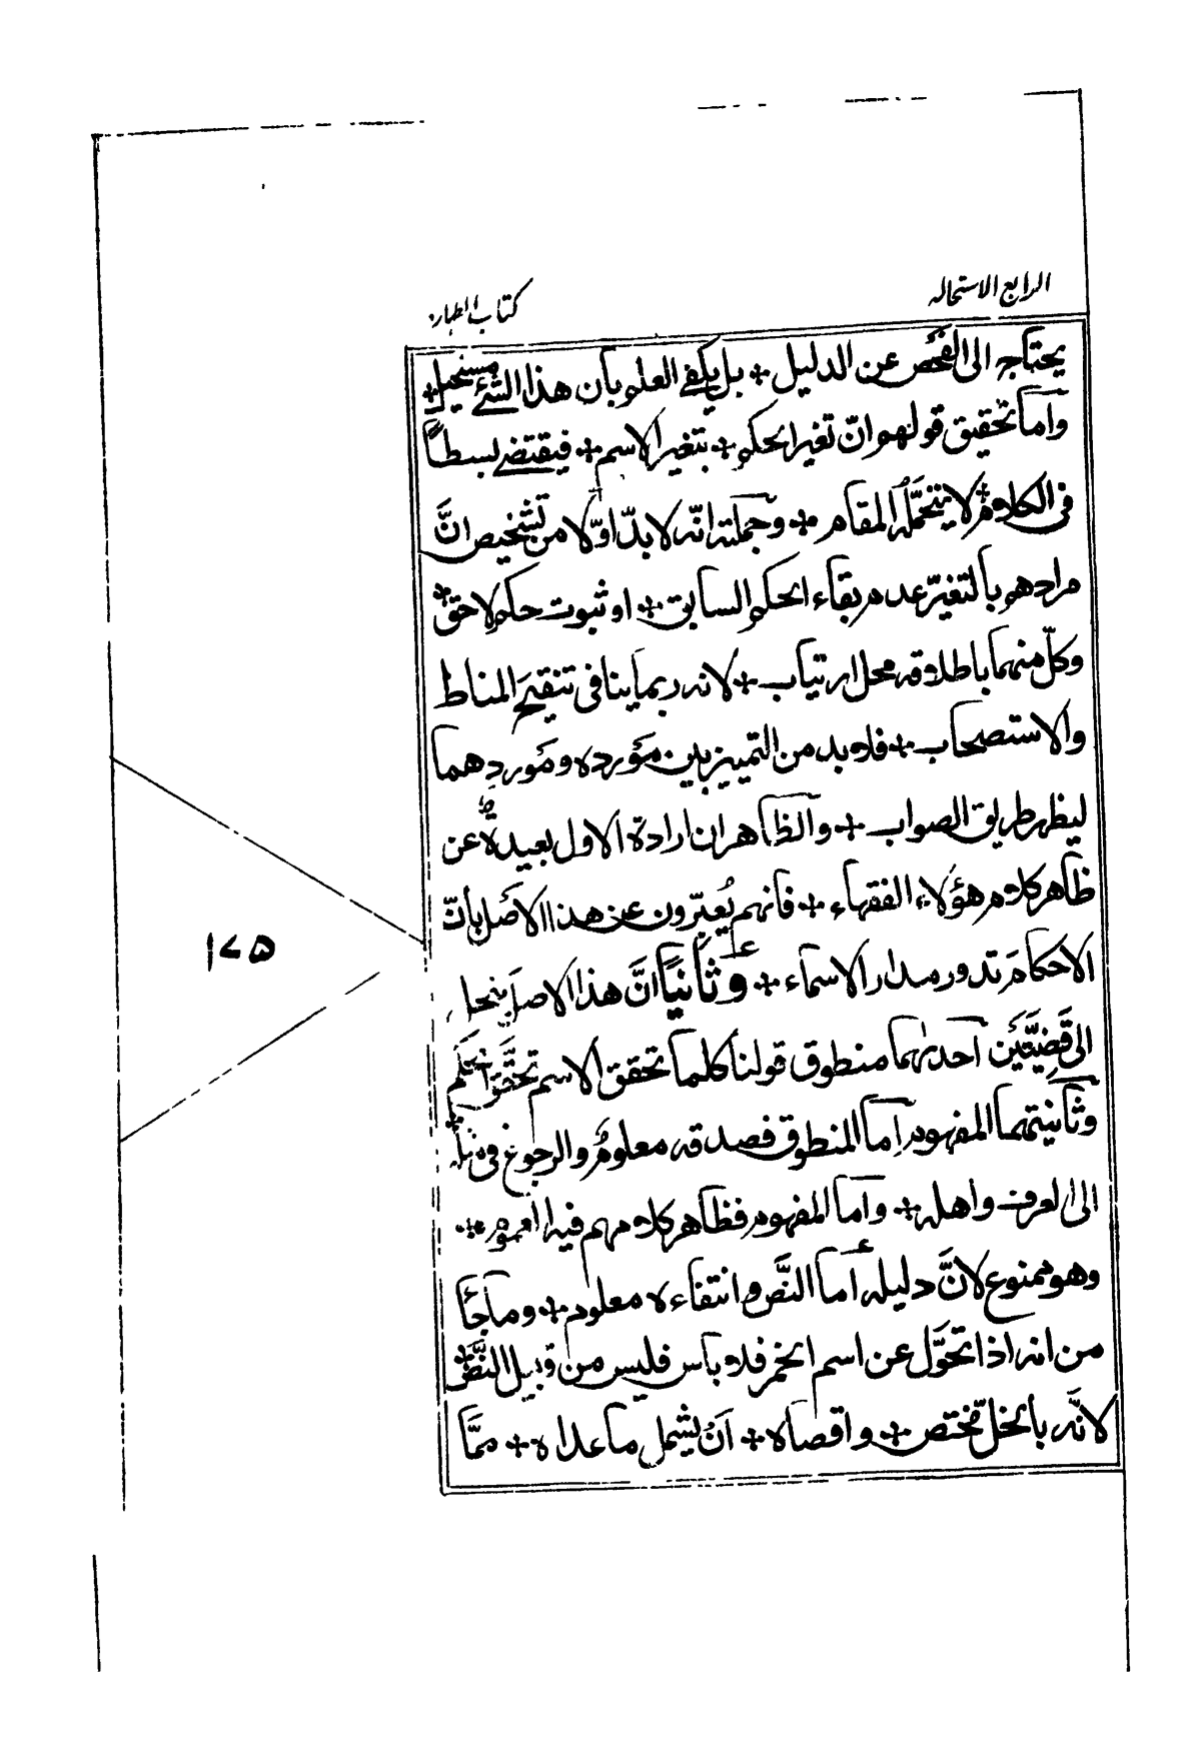 الرابع الاستحاله
كتاب الطهارة
يحتاج الى الفحص عن الدليل + بل يكفى العلم بان هذا الشئ مستحيل +
واما تحقيق قولهم انّ تغير الحكم + بتغير الاسم + فيقتضى بسطاً
فى الكلام + لا يتحمّله المقام + وجملته انّه لا بدّ اوّلا من تشخيص انَّ
مرادهم بالتغيّر عدم بقاء الحكم السابق + او ثبوت حكم لاحق +
وكلّ منهما باطلاقه محل ارتياب + لانه ربما ينافى تنقيح المناط
والاستصحاب + فلا بد من التمييز بين مَورده ومَوردِهما
ليظهر طريق الصواب + والظاهر ان ارادة الاول بعيدة عن
ظاهر كلام هؤلاء الفقهاء + فانهم يُعبّرون عن هذا الاصل بانّ
الاحكام تدور مدار الاسماء + وثانيًا انَّ هذا الاصل ينحل
الى قَضِيَّتَين احدىهما منطوق قولنا كلما تحقق الاسم تحقَّق الحكم
وثانيتهما المفهوم اما المنطوق فصدقه معلوم والرجوع فى مثله
الى العرف واهله + واما المفهوم فظاهر كلامهم فيه العموم +
وهو ممنوع لانَّ دليله اما النَّص وانتفاءه معلوم + وما جاء
من انه اذا تحَوَّل عن اسم الخمر فلا باس فليس من قبيل النَّص +
لانَّه بالخلّ مختص + واقصاه + اَنْ يشمل ما عداه + ممَّا
١٧٥